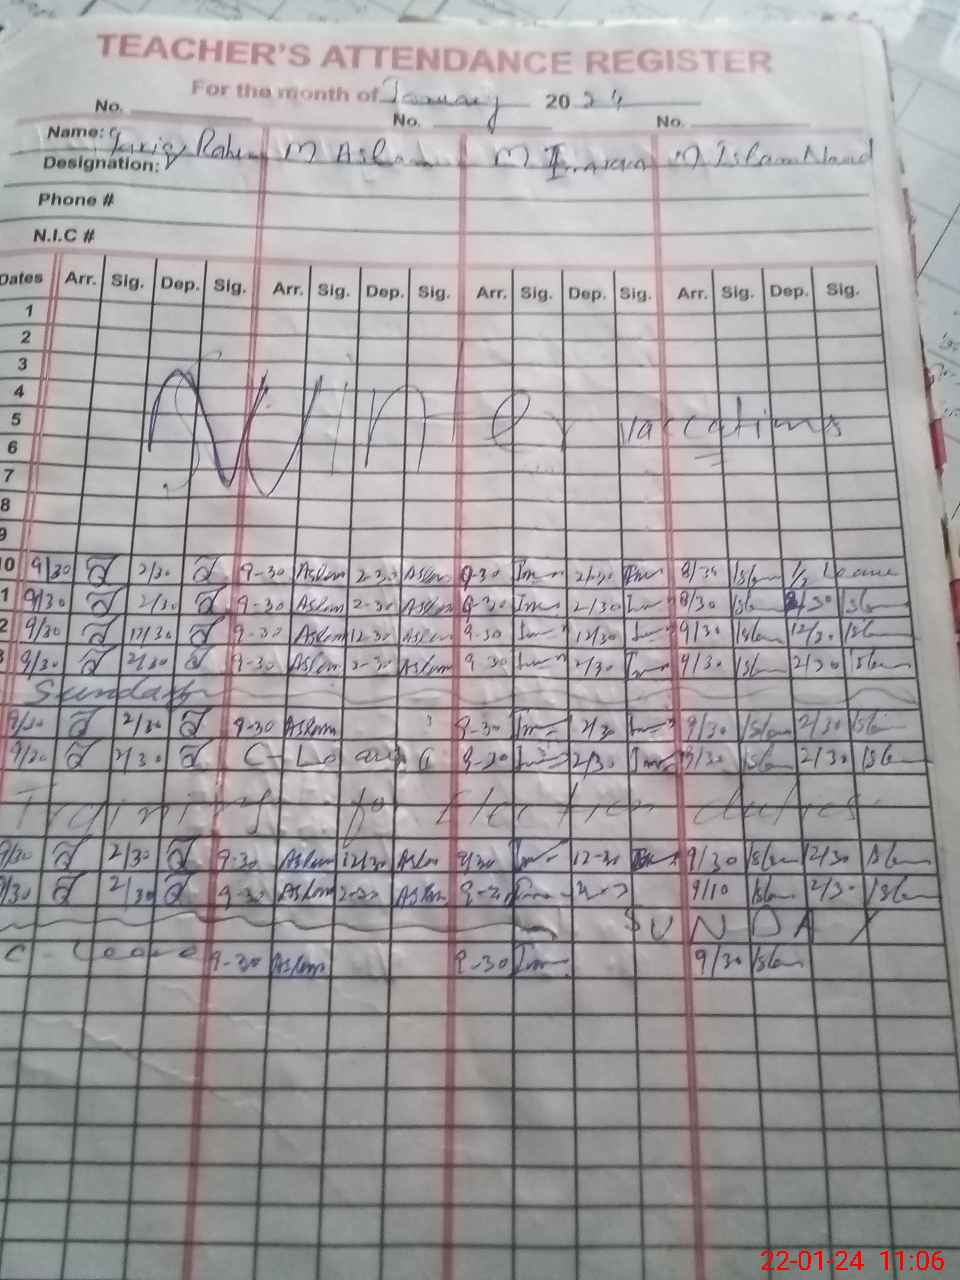 TEACHER'S ATTENDANCE REGISTER
For the month of January 2024
No. No. No.
Name: Rahim M Aslam M Imran M Islam
Designation:
Phone #
N.I.C #
Dates Arr. Sig. Dep. Sig. Arr. Sig. Dep. Sig. Arr. Sig. Dep. Sig. Arr. Sig. Dep. Sig.
1
2
3
4
5
6
7
8
9
Winter vaccations
0 9/30 2/30 9-30 Aslam 2-30 Aslam 9-30 Im 2/30 Im 8/30 Islam 1/2 Leave
1 9/30 2/30 9-30 Aslam 2-30 Aslam 9-30 Im 2/30 Im 8/30 Islam 2/30 Islam
2 9/30 12/30 9-30 Aslam 12-30 Aslam 9-30 Im 12/30 Im 9/30 Islam 12/30 Islam
3 9/30 2/30 9-30 Aslam 2-30 Aslam 9-30 Im 2/30 Im 9/30 Islam 2/30 Islam
Sunday
9/30 2/30 9-30 Aslam 9-30 Im 2/30 Im 9/30 Islam 2/30 Islam
9/30 2/30 C-Leave 9-30 Im 2/30 Im 9/30 Islam 2/30 Islam
Training for Election duties
9/30 2/30 9-30 Aslam 12/30 Aslam 9/30 Im 12-30 Im 9/30 Islam 12/30 Islam
9/30 2/30 9-30 Aslam 2-30 Aslam 9-30 Im 9/10 Islam 2/30 Islam
SUNDAY
C-Leave 9-30 Aslam 9-30 Im 9/30 Islam
22-01-24 11:06